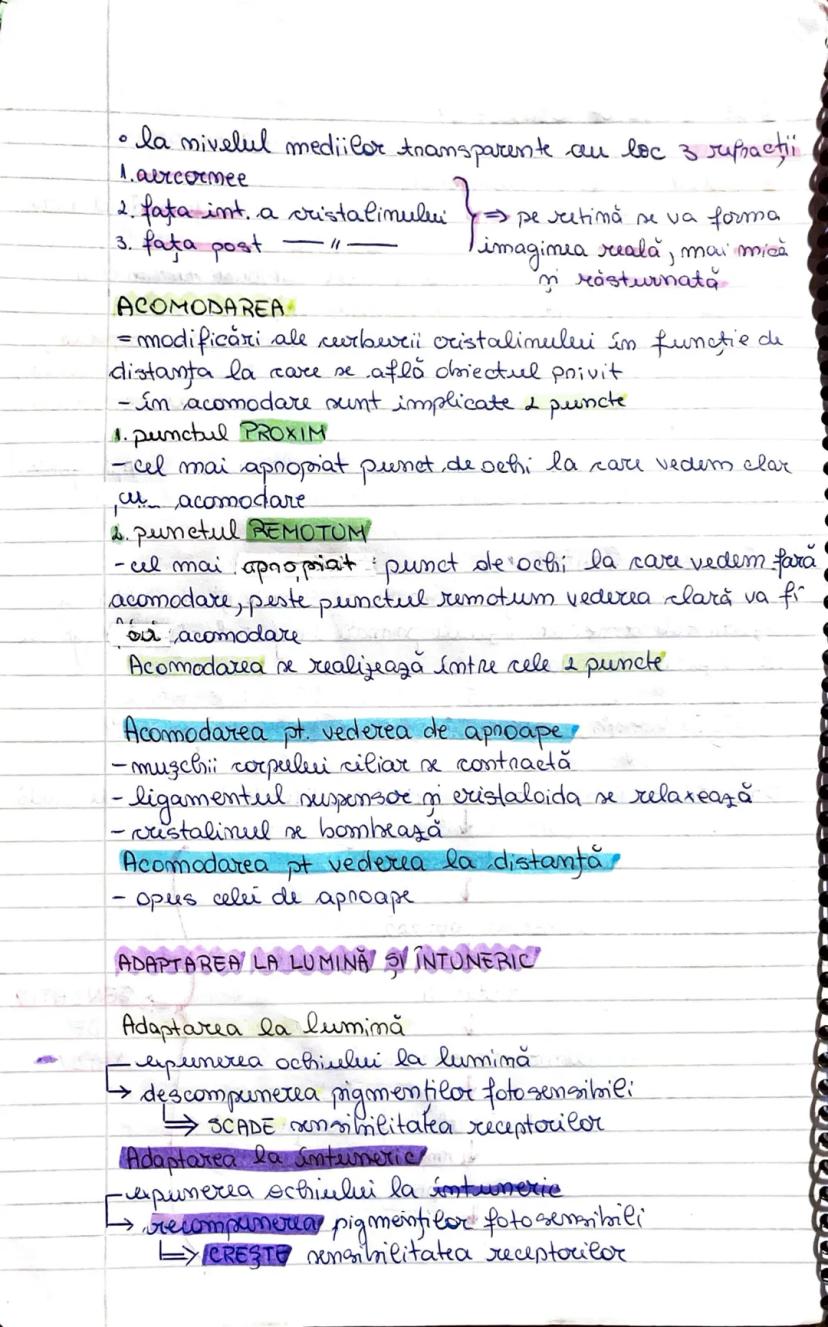 • la nivelul mediilor transparente au loc 3 refracții
1. aer cornee
2. fața int. a cristalinului
3. fața post —"—
} ⇒ pe retină se va forma
imaginea reală, mai mică
și răsturnată
ACOMODAREA
= modificări ale curburii cristalinului în funcție de
distanța la care se află obiectul privit
- în acomodare sunt implicate 2 puncte
1. punctul PROXIM
- cel mai apropiat punct de ochi la care vedem clar
cu acomodare
2. punctul REMOTUM
- cel mai apropiat punct de ochi la care vedem fară
acomodare, peste punctul remotum vederea clară va fi
acomodare
Acomodarea se realizează între cele 2 puncte
Acomodarea pt. vederea de aproape
- mușchii corpului ciliar se contractă
- ligamentul suspensor și cristaloida se relaxează
- cristalinul se bombează
Acomodarea pt vederea la distanță
- opus celei de aproape
ADAPTAREA LA LUMINĂ ȘI ÎNTUNERIC
Adaptarea la lumină
- expunerea ochiului la lumină
→ descompunerea pigmenților fotosensibili
⇒ SCADE sensibilitatea receptorilor
Adaptarea la întuneric
- expunerea ochiului la întuneric
→ recompunerea pigmenților fotosensibili
⇒ CREȘTE sensibilitatea receptorilor